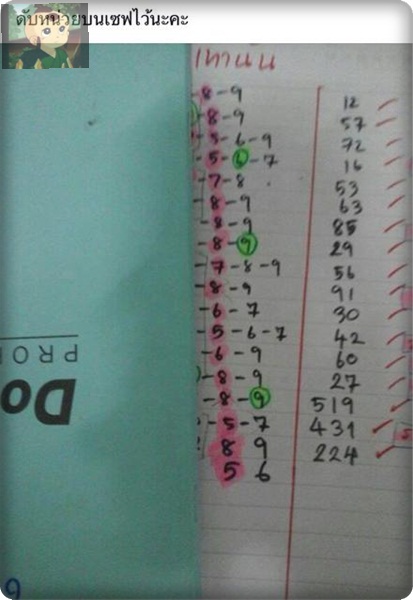 ดับหน่วยบนเซฟไว้นะคะ
8-9 12
8-9 57
5-6-9 72
5-6-7 16
7-8 53
8-9 63
8-9 85
8-9 29
7-8-9 56
8-9 91
6-7 30
5-6-7 42
6-9 60
8-9 27
8-9 519
5-7 431
8 9 224
5 6
PRO
Do